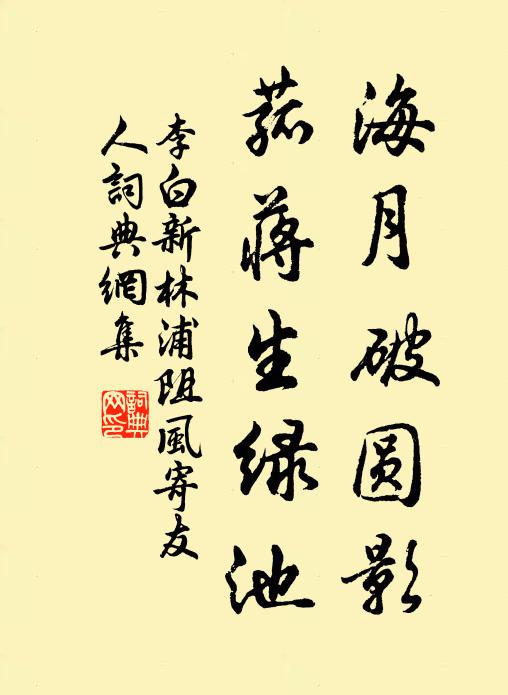 海月破圆影
菰蒋生绿池
李白新林浦阻風寄友
人詞典網集
詞典
网印